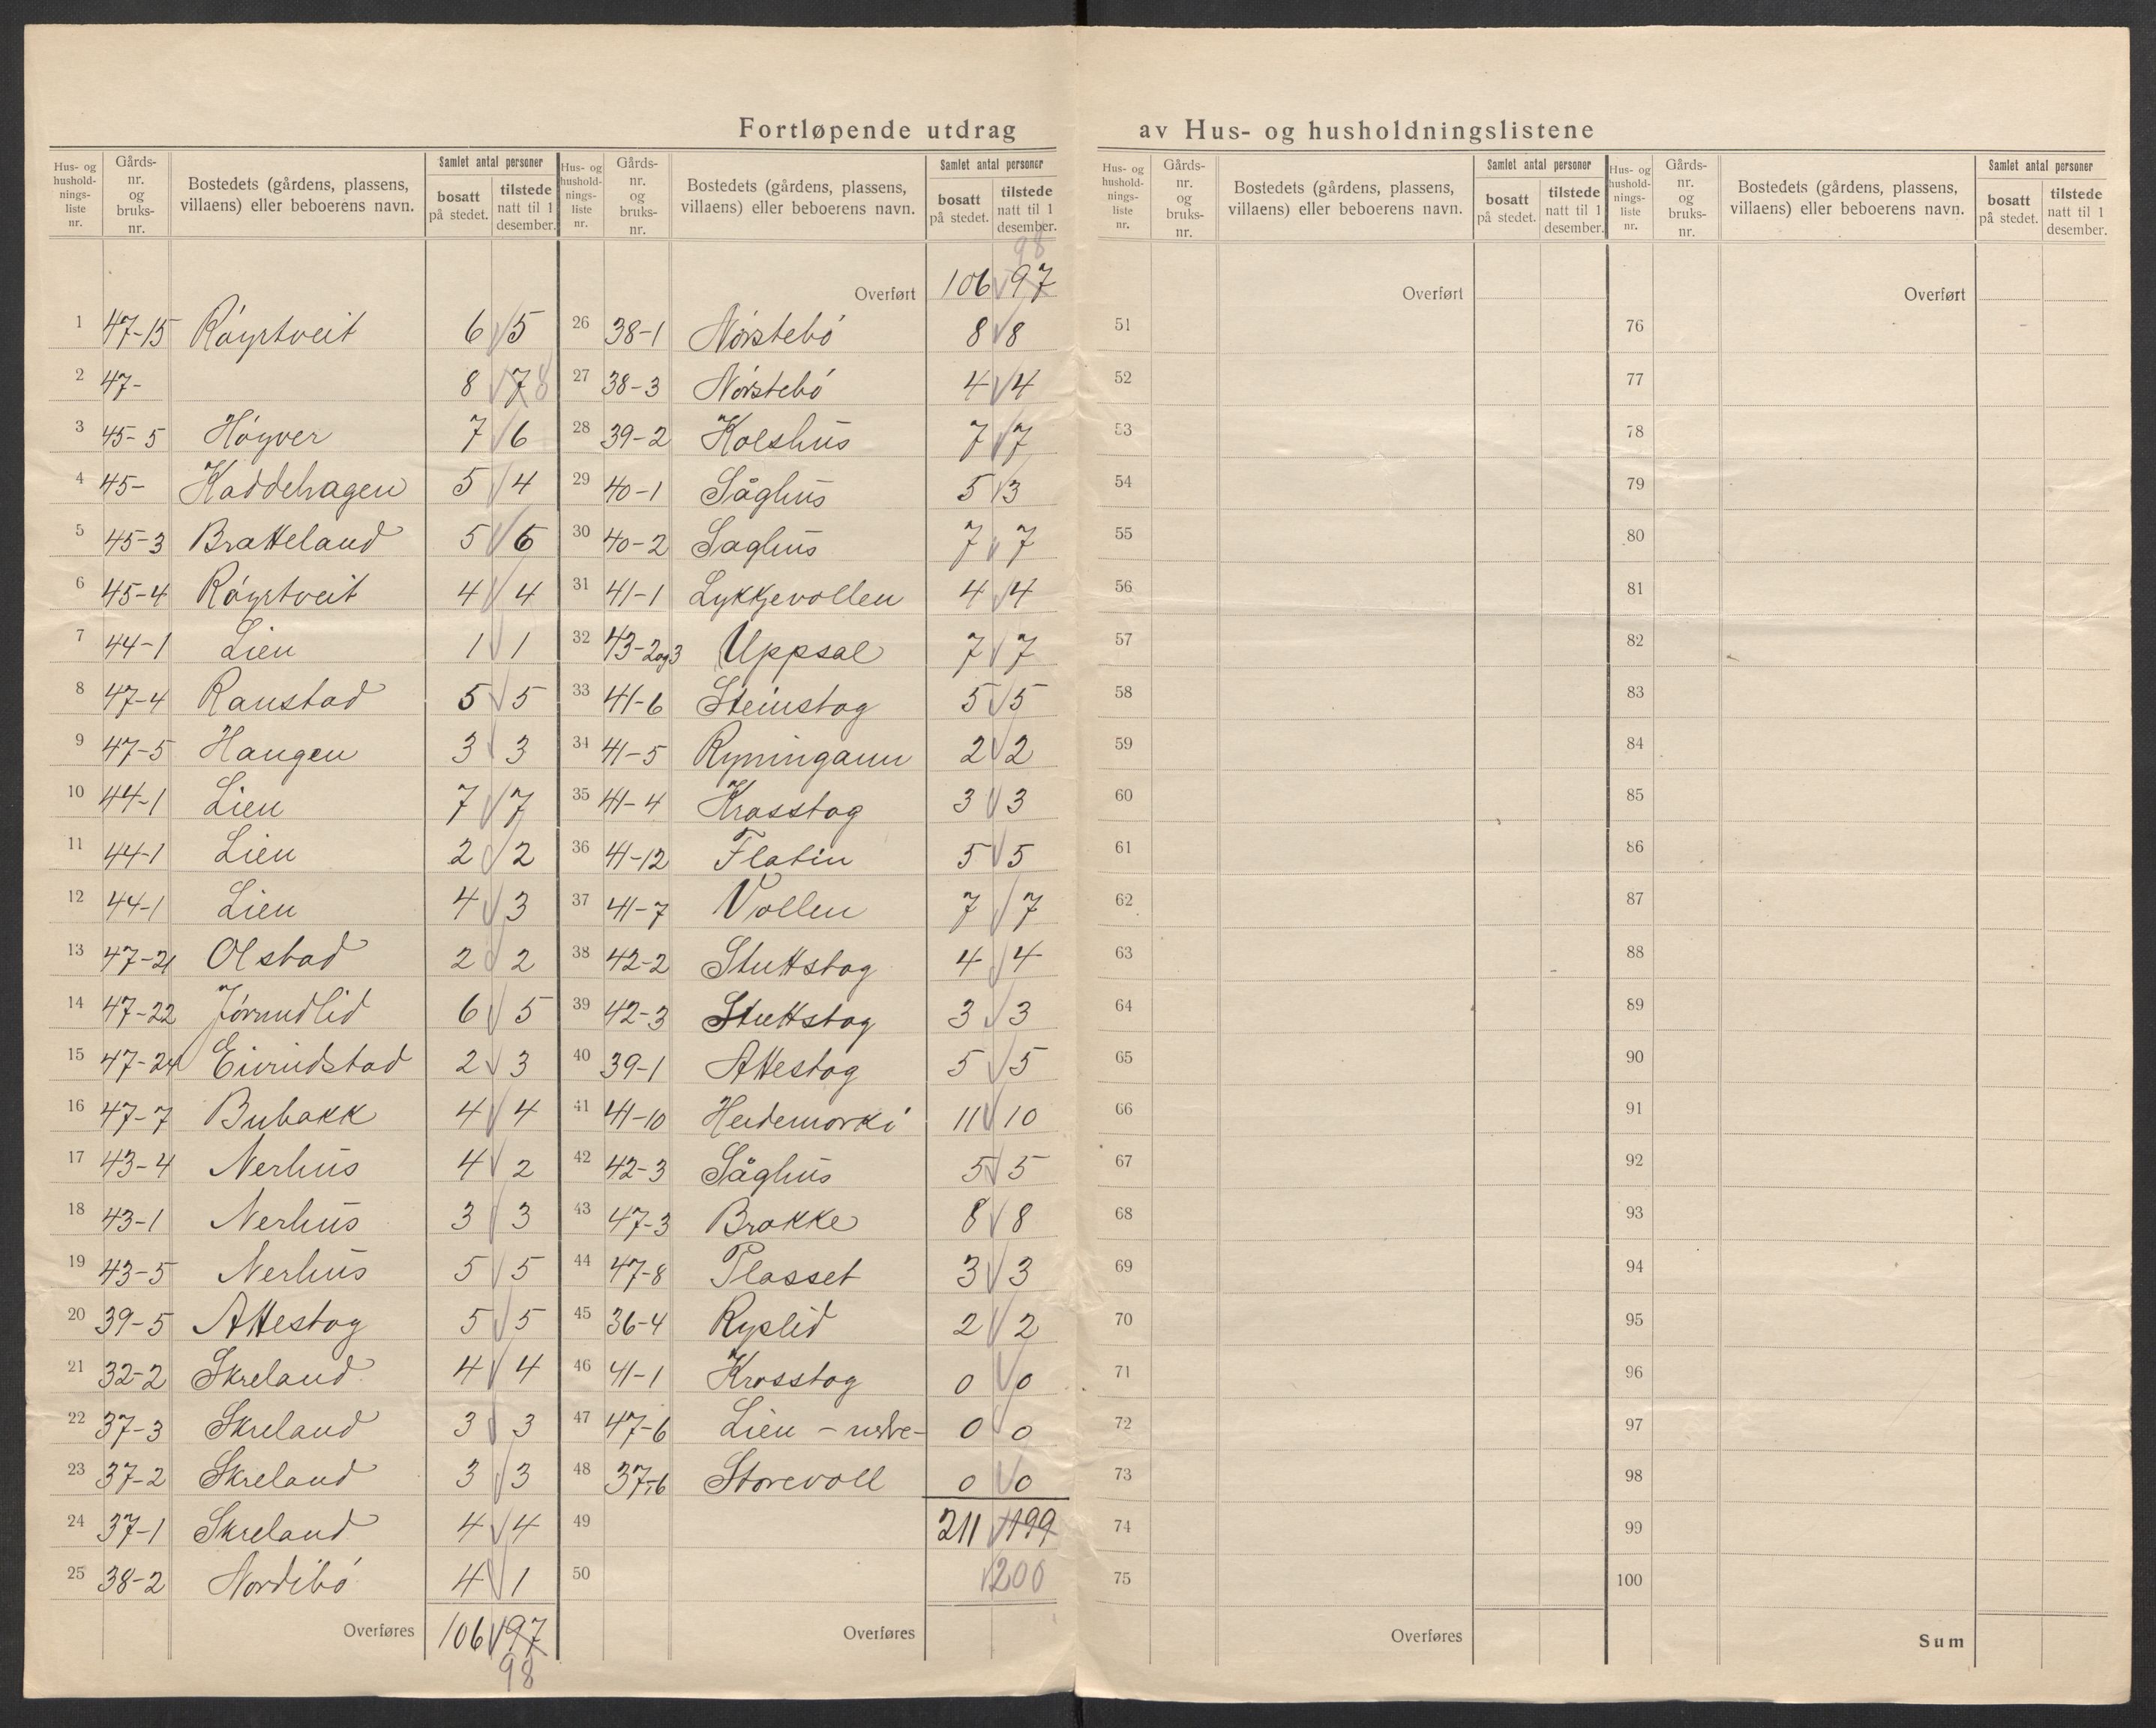 Fortløpende utdrag av Hus- og husholdningslistene
Hus- og husholdnings-liste nr. Gårds-nr. og bruks-nr. Bostedets (gårdens, plassens, villaens) eller beboerens navn. Samlet antal personer bosatt på stedet. tilstede natt til 1 desember.
1 47-15 Röyrtveit 6 5
2 47- 8 7 8
3 45-5 Höyver 7 6
4 45- Haddehagen 5 4
5 45-3 Bratteland 5 6
6 45-4 Röyrtveit 4 4
7 44-1 Lien 1 1
8 47-4 Raustad 5 5
9 47-5 Haugen 3 3
10 44-1 Lien 7 7
11 44-1 Lien 2 2
12 44-1 Lien 4 3
13 47-21 Olstad 2 2
14 47-22 Jörundlid 6 5
15 47-24 Eivindstad 2 3
16 47-7 Bubakk 4 4
17 43-4 Nerhus 4 2
18 43-1 Nerhus 3 3
19 43-5 Nerhus 5 5
20 39-5 Attestog 5 5
21 32-2 Skreland 4 4
22 37-3 Skreland 3 3
23 37-2 Skreland 3 3
24 37-1 Skreland 4 4
25 38-2 Nordibö 4 1
Overføres 106 97
98
Hus- og husholdnings-liste nr. Gårds-nr. og bruks-nr. Bostedets (gårdens, plassens, villaens) eller beboerens navn. Samlet antal personer bosatt på stedet. tilstede natt til 1 desember.
98
Overført 106 97
26 38-1 Nörstebö 8 8
27 38-3 Nörstebö 4 4
28 39-2 Kolshus 7 7
29 40-1 Såghus 5 3
30 40-2 Saghus 7 7
31 41-1 Lykkjevollen 4 4
32 43-2og3 Uppsal 7 7
33 41-6 Steinstog 5 5
34 41-5 Ryningann 2 2
35 41-4 Krosstog 3 3
36 41-12 Flatin 5 5
37 41-7 Vollen 7 7
38 42-2 Stuttstog 4 4
39 42-3 Stuttstog 3 3
40 39-1 Attestog 5 5
41 41-10 Heidemorki 11 10
42 42-3 Såghus 5 5
43 47-3 Brokke 8 8
44 47-8 Plasset 3 3
45 36-4 Ryslid 2 2
46 41-1 Krosstog 0 0
47 47-6 Lien - nedre- 0 0
48 37-6 Storevoll 0 0
49 211 199
50 200
Overføres
Hus- og husholdnings-liste nr. Gårds-nr. og bruks-nr. Bostedets (gårdens, plassens, villaens) eller beboerens navn. Samlet antal personer bosatt på stedet. tilstede natt til 1 desember.
Overført
51
52
53
54
55
56
57
58
59
60
61
62
63
64
65
66
67
68
69
70
71
72
73
74
75
Overføres
Hus- og husholdnings-liste nr. Gårds-nr. og bruks-nr. Bostedets (gårdens, plassens, villaens) eller beboerens navn. Samlet antal personer bosatt på stedet. tilstede natt til 1 desember.
Overført
76
77
78
79
80
81
82
83
84
85
86
87
88
89
90
91
92
93
94
95
96
97
98
99
100
Sum